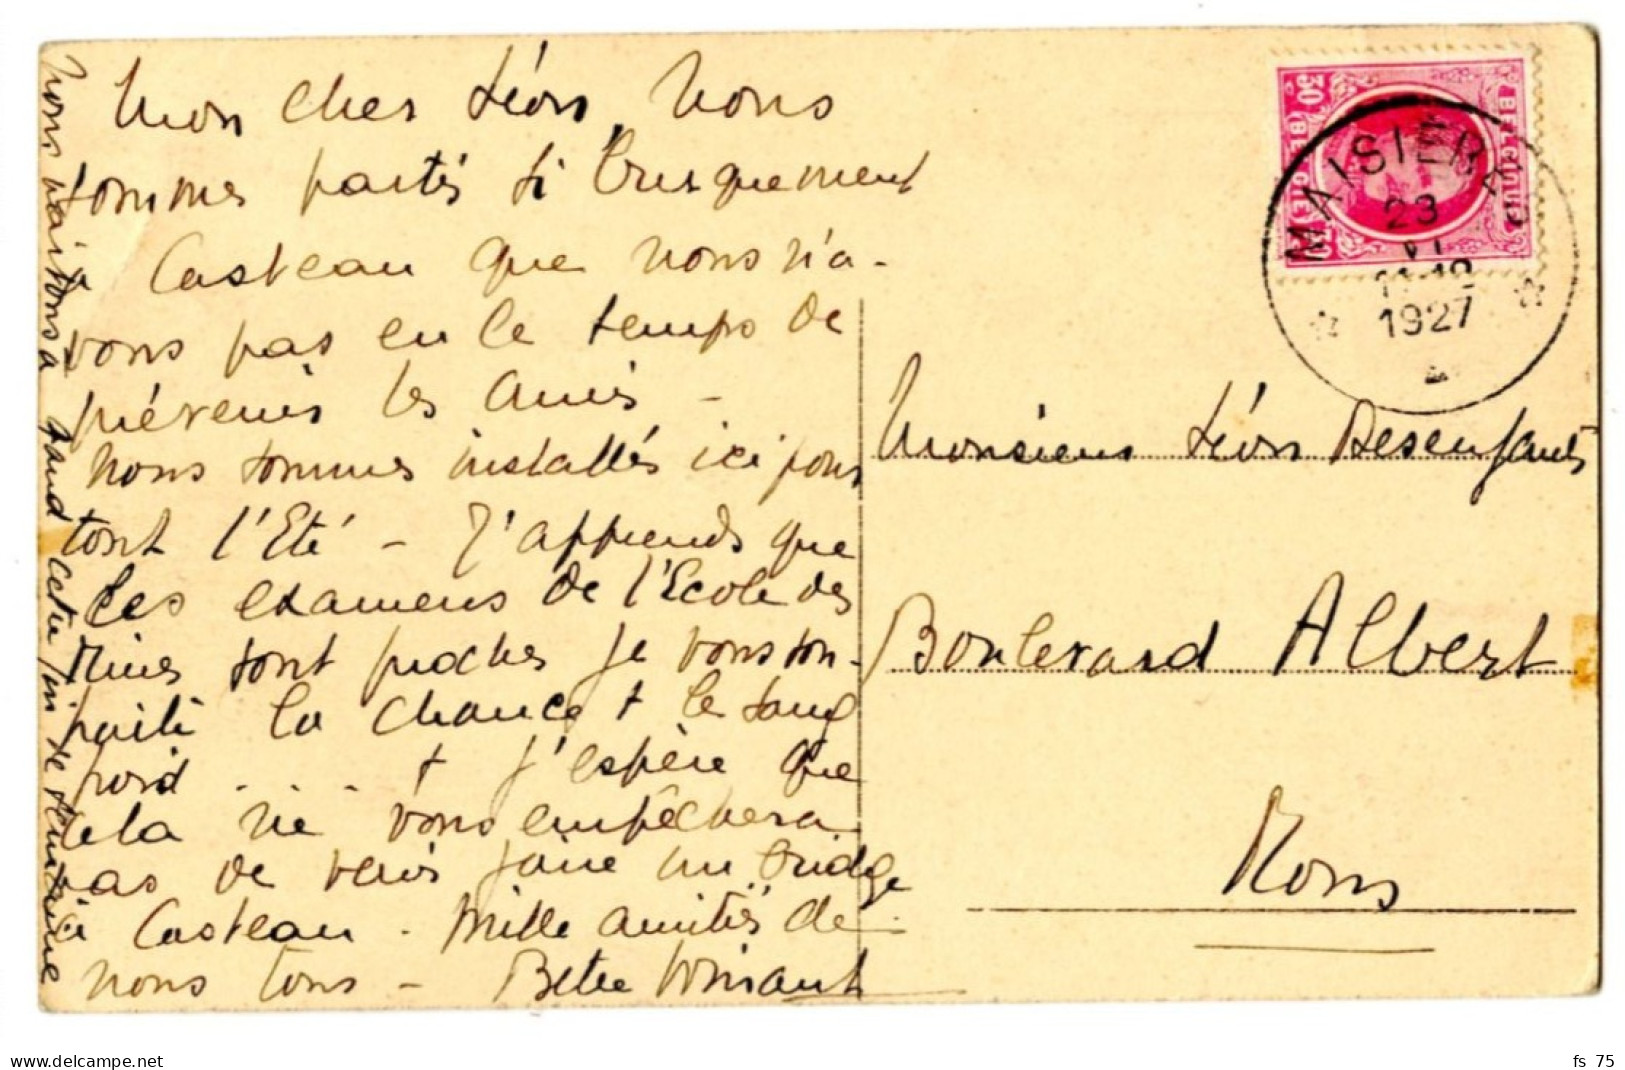 Mon cher Léon, Nous
sommes partis si brusquement
à Casteau que nous n'a-
vons pas eu le temps de
prévenir les amis -
Nous sommes installés ici pour
tout l'Eté - J'apprends que
les examens de l'Ecole des
Mines sont proches je vous sou-
haite la chance & le sang
froid . . . . & j'espère que
cela ne vous empêchera
pas de venir faire un bridge
à Casteau . Mille amitiés de
nous tous -
nous fin de semaine
BELGIQUE
30 c
(BELGIE)
MAISIERES
23
VI
11-12
1927
Monsieur Léon Desenfants
Boulevard Albert
Mons
www.delcampe.net
fs 75